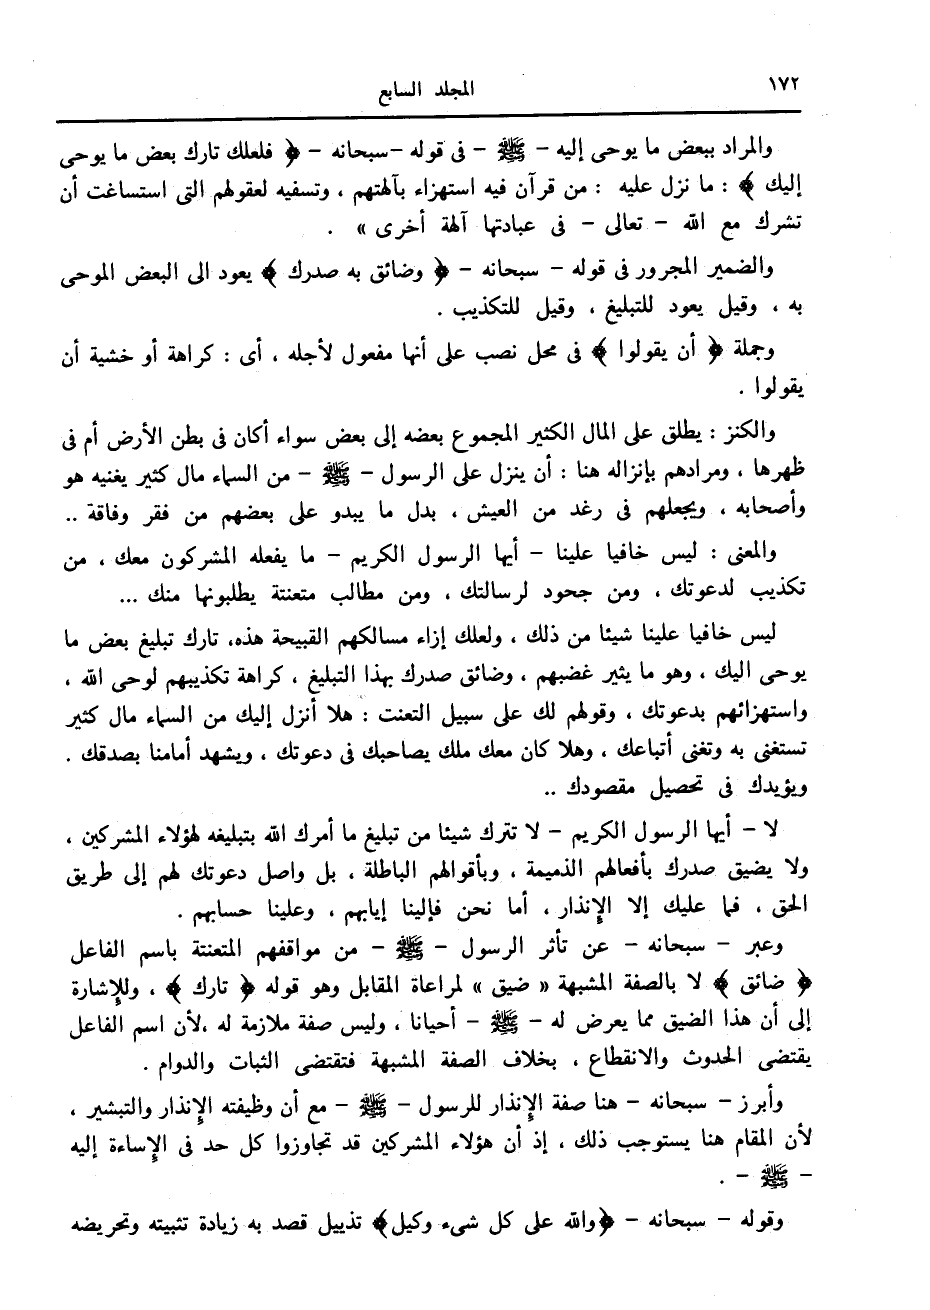 ١٧٢
المجلد السابع
والمراد ببعض ما يوحى إليه – ﷺ – فى قوله –سبحانه – ﴿ فلعلك تارك بعض ما يوحى
إليك ﴾ : ما نزل عليه : من قرآن فيه استهزاء بآلهتهم ، وتسفيه لعقولهم التى استساغت أن
تشرك مع الله – تعالى – فى عبادتها آلهة أخرى » .
والضمير المجرور فى قوله – سبحانه – ﴿ وضائق به صدرك ﴾ يعود الى البعض الموحى
به ، وقيل يعود للتبليغ ، وقيل للتكذيب .
وجملة ﴿ أن يقولوا ﴾ فى محل نصب على أنها مفعول لأجله ، أى : كراهة أو خشية أن
يقولوا .
والكنز : يطلق على المال الكثير المجموع بعضه إلى بعض سواء أكان فى بطن الأرض أم فى
ظهرها ، ومرادهم بإنزاله هنا : أن ينزل على الرسول – ﷺ – من السماء مال كثير يغنيه هو
وأصحابه ، ويجعلهم فى رغد من العيش ، بدل ما يبدو على بعضهم من فقر وفاقة ..
والمعنى : ليس خافيا علينا – أيها الرسول الكريم – ما يفعله المشركون معك ، من
تكذيب لدعوتك ، ومن جحود لرسالتك ، ومن مطالب متعنتة يطلبونها منك ...
ليس خافيا علينا شيئا من ذلك ، ولعلك إزاء مسالكهم القبيحة هذه، تارك تبليغ بعض ما
يوحى اليك ، وهو ما يثير غضبهم ، وضائق صدرك بهذا التبليغ ، كراهة تكذيبهم لوحى الله ،
واستهزائهم بدعوتك ، وقولهم لك على سبيل التعنت : هلا أنزل إليك من السماء مال كثير
تستغنى به وتغنى أتباعك ، وهلا كان معك ملك يصاحبك فى دعوتك ، ويشهد أمامنا بصدقك .
ويؤيدك فى تحصيل مقصودك ..
لا – أيها الرسول الكريم – لا تترك شيئا من تبليغ ما أمرك الله بتبليغه لهؤلاء المشركين ،
ولا يضيق صدرك بأفعالهم الذميمة ، وبأقوالهم الباطلة ، بل واصل دعوتك لهم إلى طريق
الحق ، فما عليك إلا الإنذار ، أما نحن فإلينا إيابهم ، وعلينا حسابهم .
وعبر – سبحانه – عن تأثر الرسول – ﷺ – من مواقفهم المتعنتة باسم الفاعل
﴿ ضائق ﴾ لا بالصفة المشبهة « ضيق » لمراعاة المقابل وهو قوله ﴿ تارك ﴾ ، وللإشارة
إلى أن هذا الضيق مما يعرض له – ﷺ – أحيانا ، وليس صفة ملازمة له ،لأن اسم الفاعل
يقتضى الحدوث والانقطاع ، بخلاف الصفة المشبهة فتقتضى الثبات والدوام .
وأبرز – سبحانه – هنا صفة الإنذار للرسول – ﷺ – مع أن وظيفته الإنذار والتبشير ،
لأن المقام هنا يستوجب ذلك ، إذ أن هؤلاء المشركين قد تجاوزوا كل حد فى الإساءة إليه
– ﷺ – .
وقوله – سبحانه – ﴿والله على كل شىء وكيل﴾ تذييل قصد به زيادة تثبيته وتحريضه